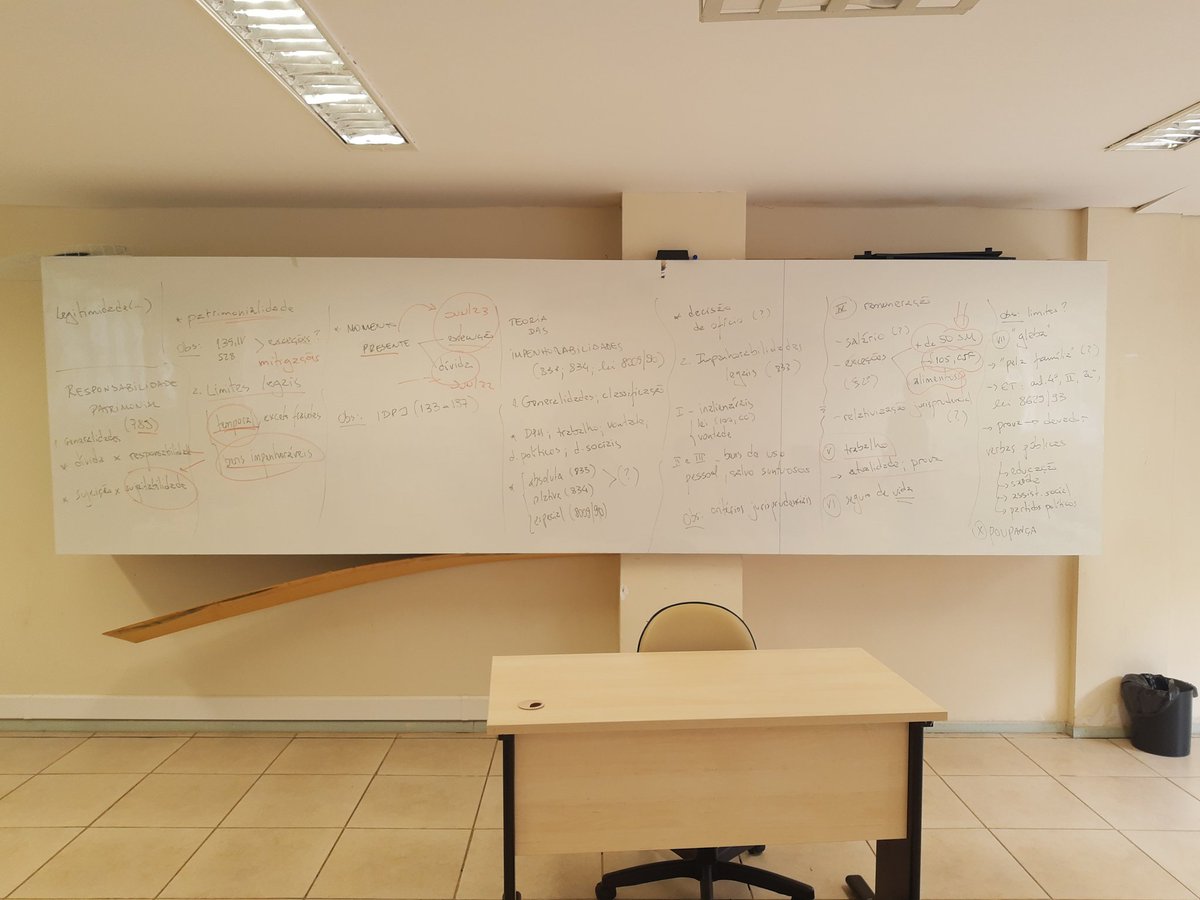 Legitimidade(-)
RESPONSABILIDADE
PATRIMONIAL
(789)
1. Generalidades
* dívida x responsabilidade
* Sujeição x sujeitabilidade
* patrimonialidade
Obs: 139, IV
528
> exceções?
mitigações
2. Limites legais
temporal, exceto fraudes
bens impenhoráveis
* MOMENTO
PRESENTE
Jul/23
execução
dívida
Jul/22
Obs: IDPJ (133-137)
TEORIA
DAS
IMPENHORABILIDADES
(833, 834, lei 8009/90)
1. Generalidades, classificação
* DPH; trabalho, vontade,
d. políticos; d. sociais
* absoluta (833)
relativa (834)
especial (8009/90)
> (?)
* decisão
de ofício (?)
2. Impenhorabilidades
legais (833)
I - inalienáveis
lei (100, CC)
vontade
II e III - bens de uso
pessoal, salvo suntuosos
Obs: critérios jurisprudenciais
IV remuneração
- salário (?)
- exceções
(§2º)
+ de 50 S.M
alimentos
- relativização jurisprudencial
(?)
V trabalho
→ atualidade, prova
VI seguro de vida
Obs: limites?
"gleba"
→ "pela família" (?)
→ ET: art. 4º, II, "a",
lei 8629/93
→ prova → devedor
verbas públicas
↳ educação
↳ saúde
↳ assist. social
↳ partidos políticos
(X) POUPANÇA